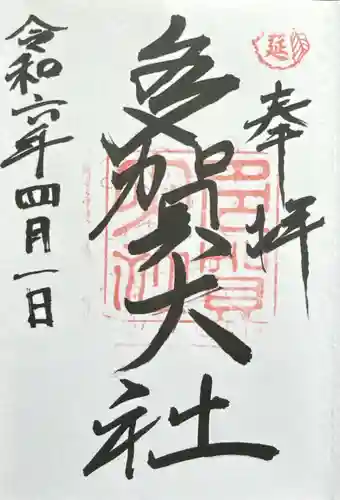 奉拝
多賀大社
令和六年四月一日
延